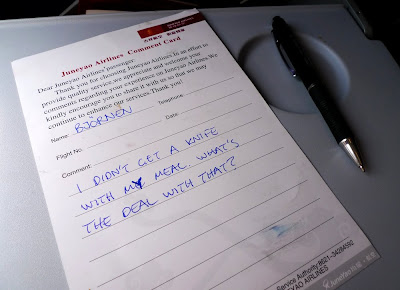 Juneyao Airlines Comment Card
Dear Juneyao Airlines' passenger:
Thank you for choosing Juneyao Airlines. In an effort to
provide quality service we appreciate and welcome your
comments regarding your experience on Juneyao Airlines. We
kindly encourage you to share it with us so that we may
continue to enhance our services. Thank you!
Name: BJORNEN Telephone:
Flight No.: Date:
Comment: I DIDN'T GET A KNIFE
WITH MY MEAL. WHAT'S
THE DEAL WITH THAT?
Service Authority:8621-
JUNEYAO AIRLINES